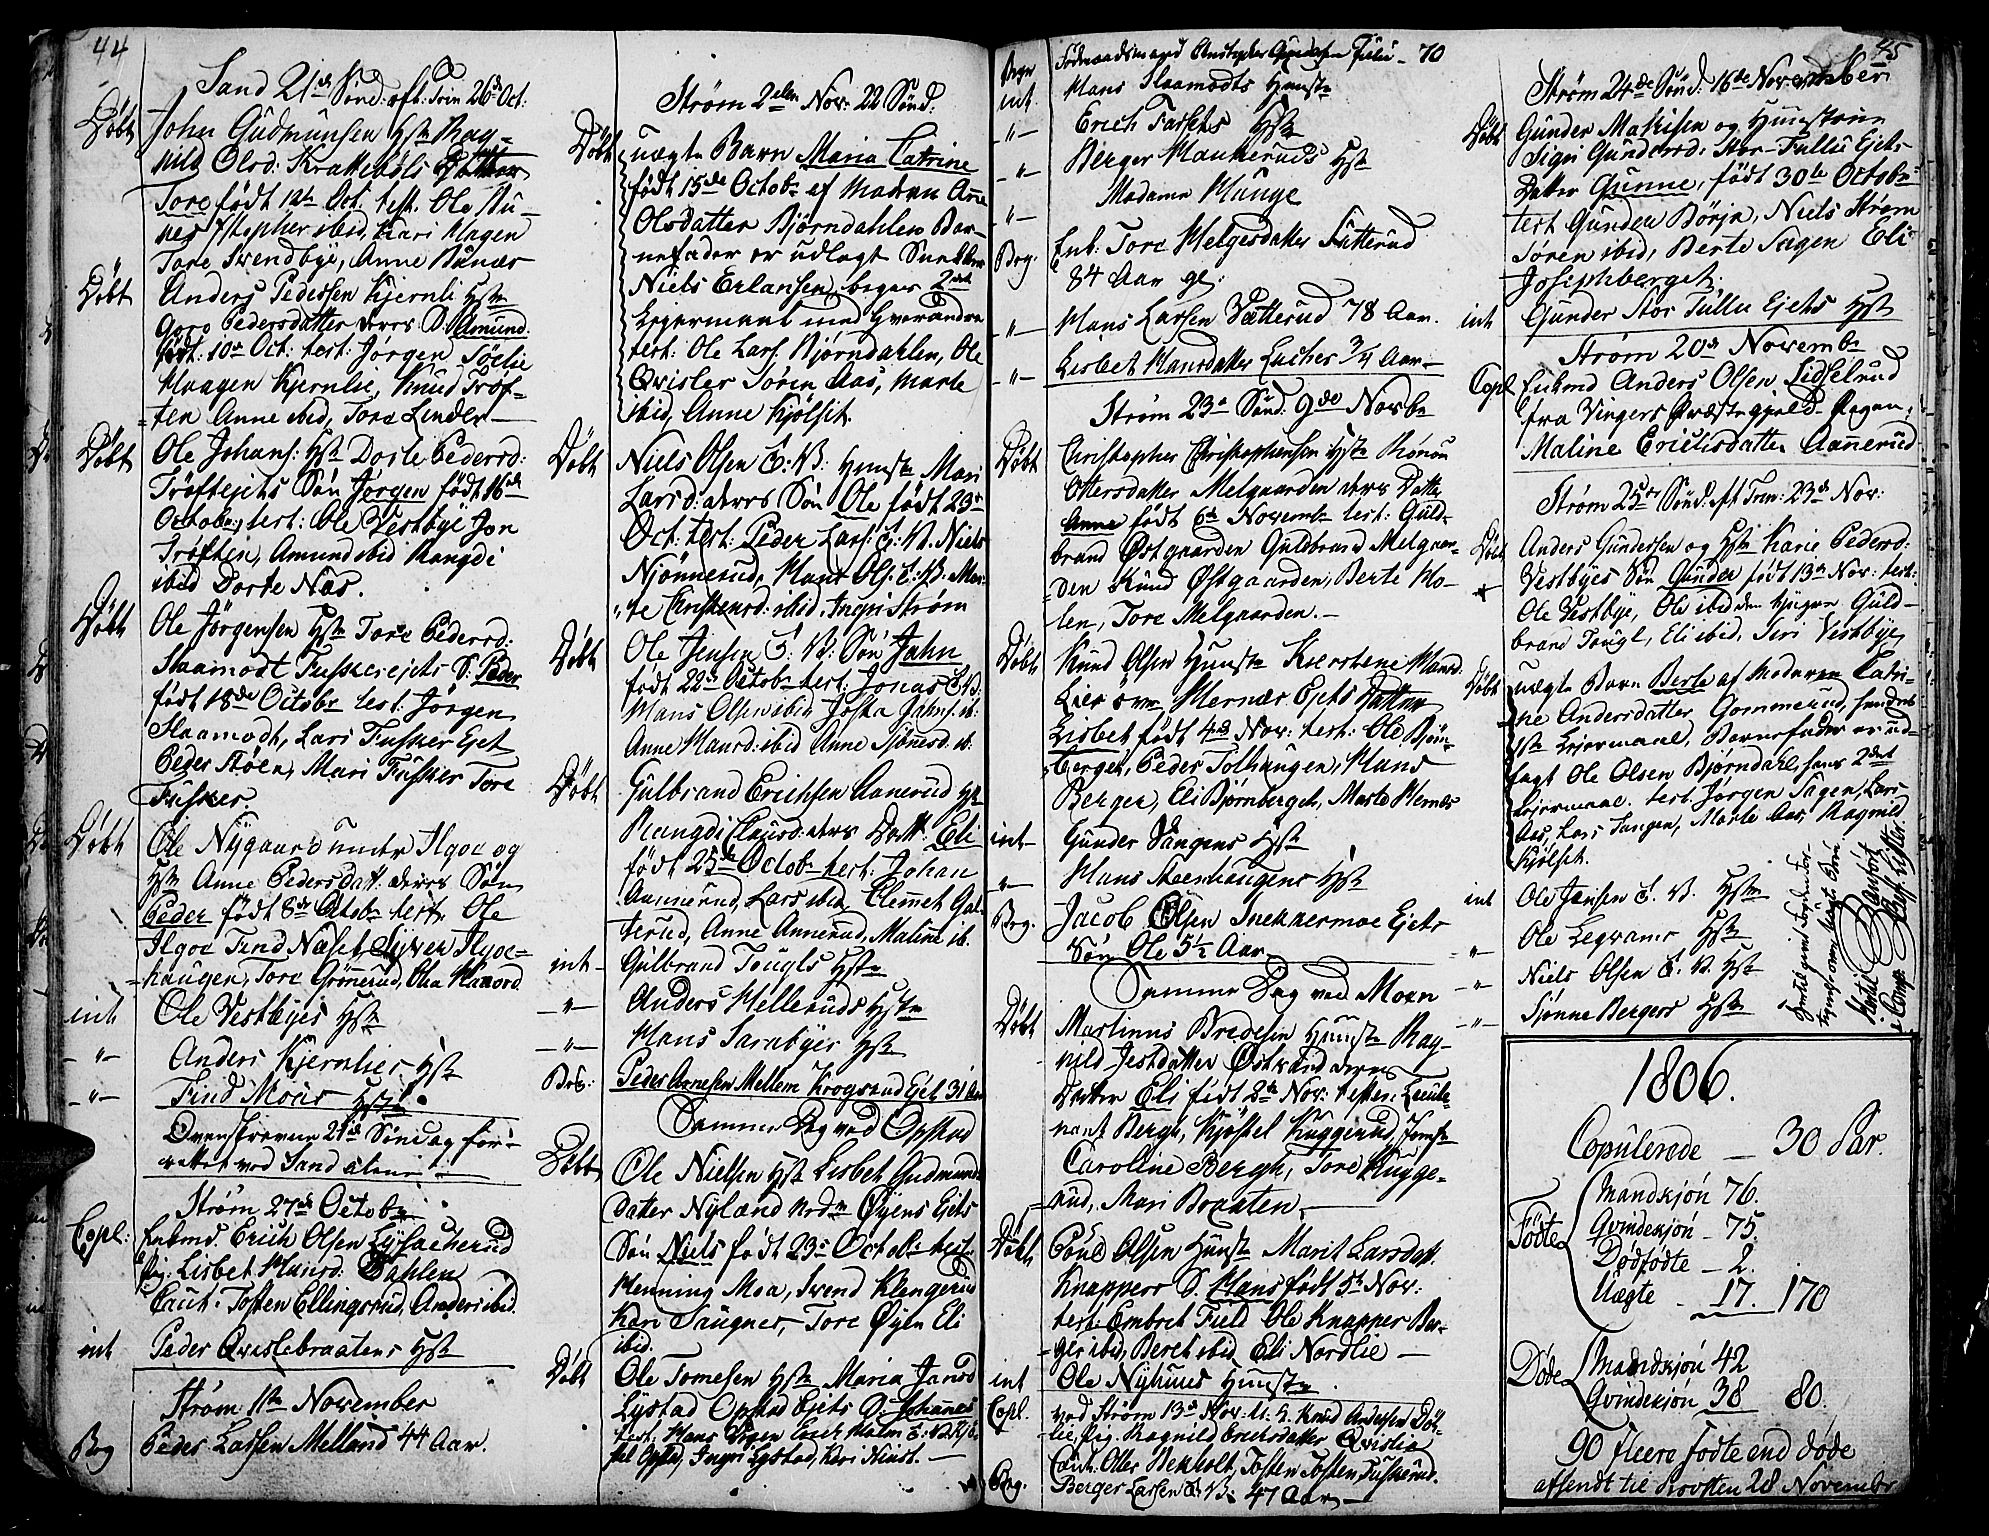 44
Sand 21de Sönd. eft: Trin 26de Oct:
Döbt John Gudmunsen Hst Rag-
nild Olsd: Krakebøls Datter
Tore født 12te Oct. test. Ole Ru-
nes Christopher ibid, Kari Hagen
Tore Svendbye, Anne Runæs
Döbt Anders Pedersen Kjernli Hst
Goro Pedersdatter deres S. Amund
født: 10de Oct: test: Jørgen Söelie
Haagen Kjernlie, Knud Trøf-
ten Anne ibid, Tore Linder
Döbt Ole Johans: Hst Dorte Pedersd:
Trøftejets Søn Jørgen født 16de
Octobr, test: Ole Vestbye Jon
Trøften, Amund ibid Rangdi
ibid Dorte Næs.
Döbt Ole Jörgensen Hst Tore Pedersd:
Haamodt Fuskerejets S: Peder
født 18de Octobr test: Jörgen
Haamodt, Lars Fusker Ejet
Peder Støen, Mari Fusker Tore
Fusker.
Döbt Ole Nygaard under Ilgoe og
Hst Anne Pedersdatt: deres Søn
Peder født 8de Octobr test. Ole
Ilgoe Find Næset, Syver Ilgoe-
haugen, Tore Grönnerud, Olea Haaord
int Ole Vestbyes Hst
-"- Anders Kjernlies Hst
-"- Find Moes Hst
Ovenskrevne 21de Söndag for-
rettet ved Sand alene
Strøm 27de Octobr
Copl: Enkmd. Erich Olsen Lysacherud
Pig: Lisbet Hansd: Dahlen
Caut. Tosten Ellingsrud, Anders ibid.
int Peder Qvislebraatens Hst
Strøm 1ste November
Beg Peder Larsen Melland 44 Aar.
Strøm 2den Nov: 22 Sönd.
Döbt uægte Barn Maria Catrine
født 15de Octobr af Moderen Anne
Olsdatter Bjørndahlen Bar-
nefader er udlagt
Niels Erlansen, begges 2det
Lejermaal med hverandre
test: Ole Lars. Bjørndahlen, Ole
Qvisler Sören Aas, Marte
ibid, Anne Kjölset.
Döbt Niels Olsen E: V: Hunst Mari
Larsd: deres Søn Ole født 23de
Oct: test: Peder Lars: E: V. Niels
Njönnerud, Hans Ols: E: V: Mar-
te Christensd: ibid. Ingri Strøm
Döbt Ole Jensen E: V: Søn Jahn
født 22de Octobr test: Jonas E: V:
Hans Olsen ibid Josta Jahns. ib:
Anne Hansd: ibid Anne Sjönnesd. ib:
Döbt Gulbrand Erichsen Aanerud Hst
Rangdi Clausd: deres Datt: Eli
født 25de Octobr test: Johan
Aannerud, Lars ibid, Clemmet Gul-
terud, Anne Annerud, Maline ib.
int Gulbrand Tougls Hst
-"- Anders Hellerud's Hst
-"- Hans Sarnbyes Hst
Beg: Peder Arnesen Mellem Krogsrud Ejet 31 Aar
Samme Dag ved Opstad
Döbt Ole Nielsen Hst Lisbet Gudmunds
datter Nyland Øyens Ejets
Søn Niels født 23de Octobr test:
Henning Moa, Svend Klengerud
Kari Saugnes, Tore Øyen Eli
ibid.
Döbt Ole Tomesen Hst Maria Jansd
Lystad Opstad Ejets S: Johannes
test: Hans
Opstd, Ingri Lystad, Kari Ninst. —
Beg. Födraadsmand Christopher Gundersen Tullu - 70
int. Hans Haamodts Hunst
-"- Erich Fossets Hst
-"- Berger Haukeruds Hst
-"- Madame Hauge
Beg. Enk. Tore Helgesdatter Sætterud
84 Aar gl:
-"- Hans Larsen Vætterud 78 Aar.
-"- Lisbet Hansdatter Laches 3/4 Aar -
Strøm 23de Sönd: 9de Novbr
Döbt Christopher Christophersen Hst Rönnou
Ottersdatter Melgaarden deres Datter
Anne født 6te Novembr test: Guld-
brand Østgaarden Guldbrand Melgaar-
den Knud Østgaarden, Berte Ho-
len, Tore Melgaarden. -
Döbt Knud Olsen Hunst Kierstene Hansd:
Lier Hernæs Ejets Datter
Lisbet født 4de Nov: test: Ole Björn-
berget, Peder Tolhaugen, Hans
Berger, Eli Björnberget, Marte Hernæs
int Gunder Vangens Hst
-"- Hans Steenhaugens Hst
Beg. Jacob Olsen Snekkermoe Ejets
Søn Ole 5½ Aar
Samme Dag ved Moen
Döbt Martinus Bredesen Hunst Rag-
nild Jestdatter Østrand deres
Datter Eli født 2de Nov: testes: Lieute-
nant Bergh, Kjöstel Kuggerud, Jomfr
Caroline Bergh, Tore Kugge-
rud, Mari Braaten,
Döbt Poul Olsen Hunst Marit Larsdatt.
Knappers S. Hans født 5te Nov:
test: Embret Field Ole Knapper Ber-
ger ibid, Beret ibid Eli Nordlie —
int Ole Nyhuus Hunst
Copl. ved Strøm 13de Nov: Knud Andersen Döl-
lie, Pig. Ragnild Erichsdatter Qvislia
Caut: Oller Bekholt, Tosten Tosten Fuskerud.
Beg. Berger Larsen E. V: 47 Aar —
45
Strøm 24de Sönd: 16de November
Döbt Gunder Mathisen og Hunstruen
Sigri Gundersd: Stor-Tullu Ejets
Datter Gunne, født 30te Octobr
test Gunder Börja, Niels Strøm
Sören ibid, Berte Sagen Eli
Josephberget.
int Gunder Stor Tullu Ejets Hst
Strøm 20de Novembr
Copl Enkmd Anders Olsen Lidselrud
fra Vingers Præstegjeld Pigen,
Maline Erichsdatter Aannerud
Strøm 25de Sönd: eft Trin: 23de Nov:
Döbt Anders Gundersen og Hst Karie Pedersd:
Vestbyes Søn Gunder født 13de Nov: test:
Ole Vestbye, Ole ibid den yngre Guld-
brand Tougl, Eli ibid, Siri Vestbye
Döbt uægte Barn Berte af Moderen Catri-
ne Andersdatter Gommerud, hendes
1ste Lejermaal, Barnefader er ud-
lagt Ole Olsen Bjørndahl, hans 2det
Lejermaal. test: Jörgen Sagen, Lars
Aas, Lars Sangen, Marte Aas Ragnild
Kjølset.
int Ole Jensen E. V. Hst
-"- Ole Legvams Hst
-"- Niels Olsen E. V. Hst
-"- Sjönne Bergers Hst
1806.
Copulerede — 30 Par.
Födte Mandkjön 76.
Qvindekjön - 75.
Dödfödte - 2.
Uægte - 17. 170
Döde Mandkjön 42
Qvindekjön 38 80.
90 fleere fødte end døde
afsendt til Provsten 28 November